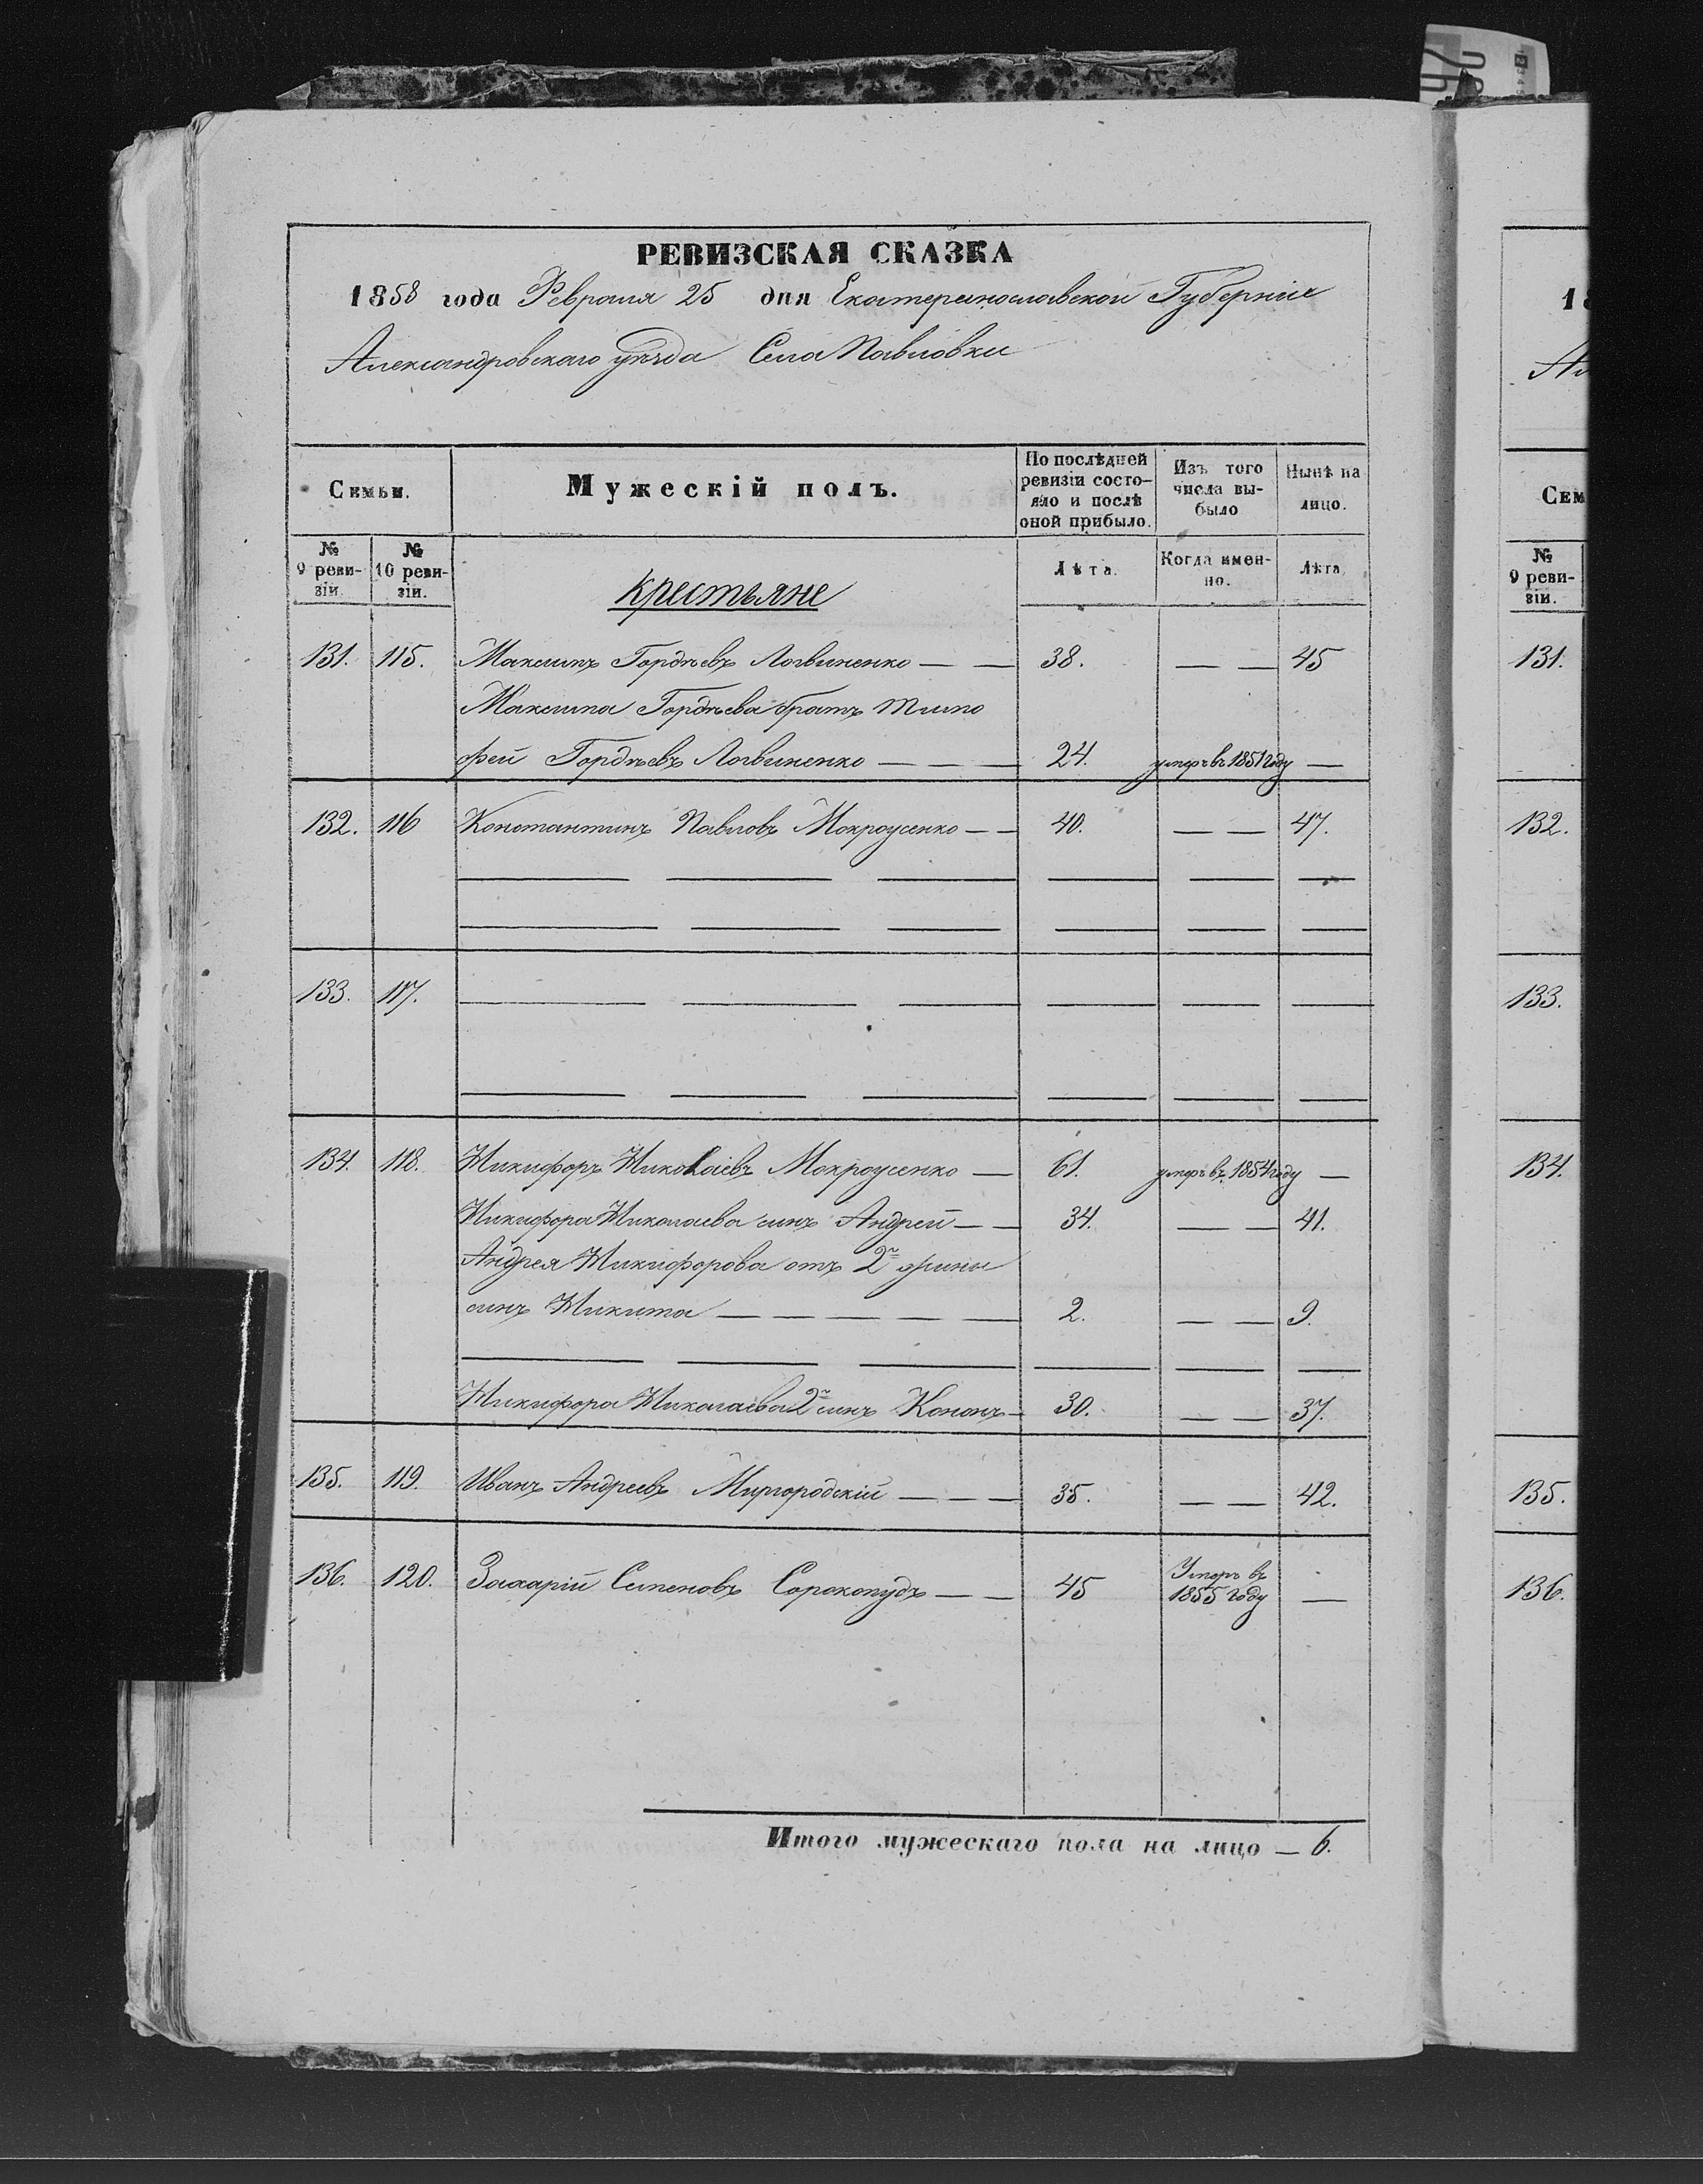 РЕВИЗСКАЯ СКАЗКА
1858 года Февраля 25 дня Екатеринославской Губерніи
Александровскаго уѣзда Села Павловки
Семьи.
Мужескій полъ.
По послѣдней ревизіи состо-
яло и послѣ оной прибыло.
Изъ того числа вы-
было
Нынѣ на лицо.
№ 9 реви-
зіи.
№ 10 реви-
зіи.
Крестьяне
Лѣта.
Когда имен-
но.
Лѣта
131. 115. Максимъ Гордѣевъ Логвиненко — — 38. — — 45
Максима Гордѣева братъ Тимо
фей Гордѣевъ Логвиненко — — — 24. умеръ въ 1851 году —
132. 116 Константинъ Павловъ Мокроусенко — — 40. — — 47.
133. 117.
134. 118. Никифоръ Николаевъ Мокроусенко — 61. умеръ въ 1854 году —
Никифора Николаева сынъ Андрей — — 34. — — 41.
Андрея Никифорова отъ 2й жены
сынъ Никита — — — — — 2. — — 9.
Никифора Николаева 2й сынъ Кононъ — 30. — — 37.
135. 119. Иванъ Андреевъ Миргородскій — — — 35. — — 42.
136. 120. Захарій Семеновъ Сорокопудъ — — 45 Умеръ въ
1855 году —
Итого мужескаго пола на лицо — 6.
18
Ал
Сем
№ 9 реви-
зіи.
131.
132.
133.
134.
135.
136.